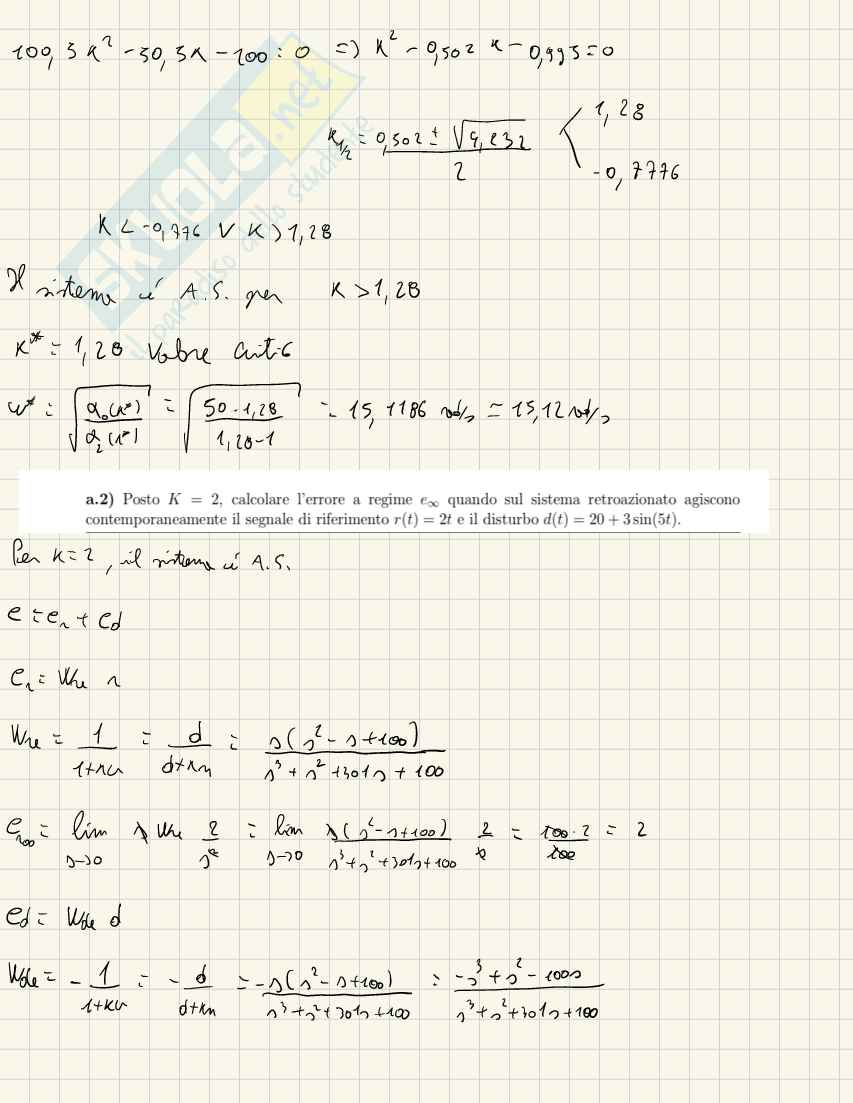 100,5K² - 50,5K - 100 = 0 => K² - 0,502 K - 0,995 = 0
K₁/₂ = (0,502 ± √4,232) / 2 < 1,28
-0,7776
K < -0,776 ∨ K > 1,28
Il sistema é A.S. per K > 1,28
K* = 1,28 Valore Critic
ω* = √(a₀(K*) / a₂(K*)) = √(50·1,28 / 1,28-1) = 15,1186 rad/s ≃ 15,12 rad/s
a.2) Posto K = 2, calcolare l'errore a regime e∞ quando sul sistema retroazionato agiscono
contemporaneamente il segnale di riferimento r(t) = 2t e il disturbo d(t) = 20 + 3 sin(5t).
Per K=2, il sistema é A.S.
e = eᵣ + e_d
eᵣ = Wre r
Wre = 1 / (1+KG) = d / (d+Kn) = s(s² - s + 100) / (s³ + s² + 301s + 100)
eᵣ∞ = lim s→0 s Wre 2/s² = lim s→0 s(s² - s + 100) / (s³ + s² + 301s + 100) 2/s = 100·2 / 100 = 2
e_d = Wde d
Wde = - 1 / (1+KG) = - d / (d+Kn) = -s(s² - s + 100) / (s³ + s² + 301s + 100) = (-s³ + s² - 100s) / (s³ + s² + 301s + 100)
SKUOLA.net
il paradiso dello studente